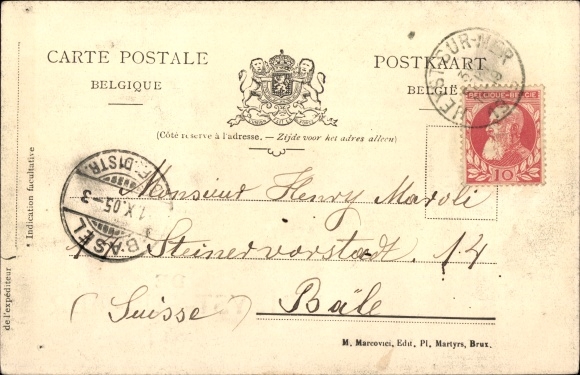 CARTE POSTALE
BELGIQUE
POSTKAART
BELGIË
(Côté réservé à l'adresse. — Zijde voor het adres alleen)
BELGIQUE-BELGIË
10
BASEL
1.X.05-3
BR.F.DISTR.
Monsieur Henry Maroli
Steinenvorstadt. 14
Bâle
(Suisse
M. Marcovici, Edit, Pl. Martyrs, Brux.
Indication facultative
de l'expéditeur